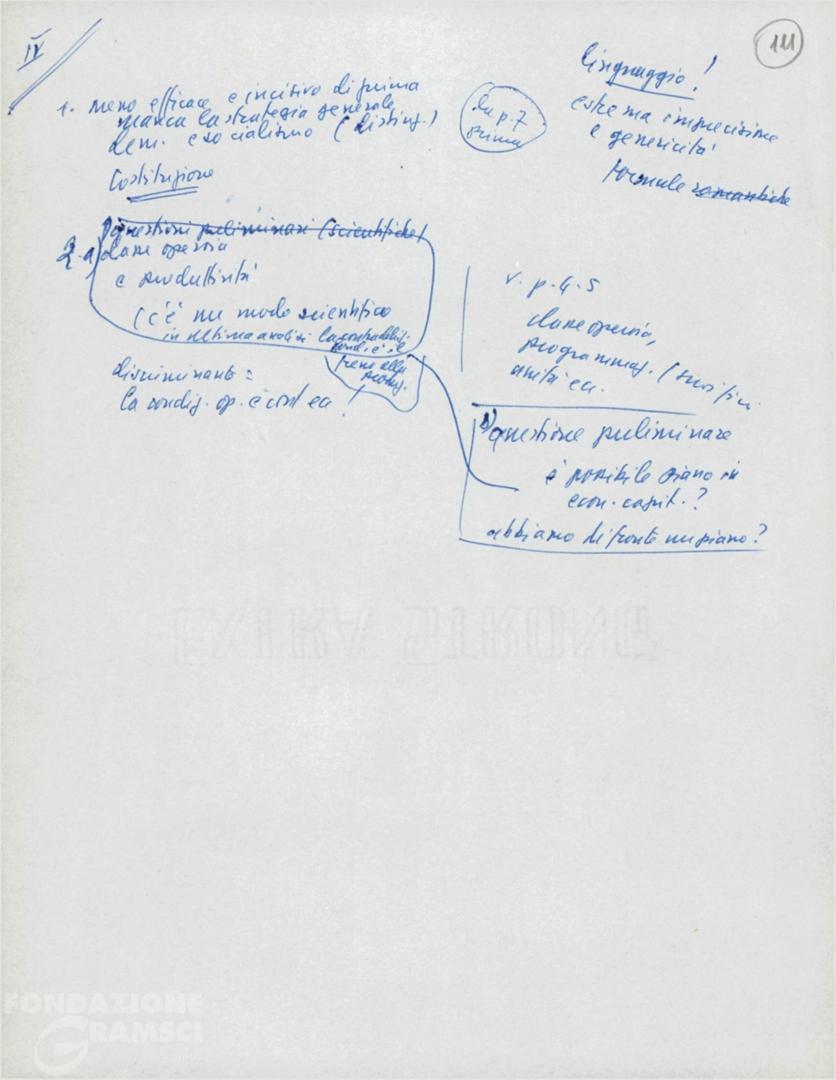 IV
111
linguaggio!
estrema imprecisione
e genericità
formule romantiche
1. meno efficace e incisivo di prima
manca la strategia generale
dem. e socialismo (disting.)
la p. 7
prima
Costituzione
1) questioni preliminari (scientifiche)
2. a) classe operaia
e produttività
(c'è un modo scientifico
in ultima analisi la
freno alla
produz.
discriminante:
la condiz. op. e cont ea !
v. p. 4-5
classe operaia,
programmaz.
unità ecc.
questione preliminare
è possibile piano in
econ. capit.?
abbiamo di fronte un piano?
EXTRA STRONG
FONDAZIONE
GRAMSCI